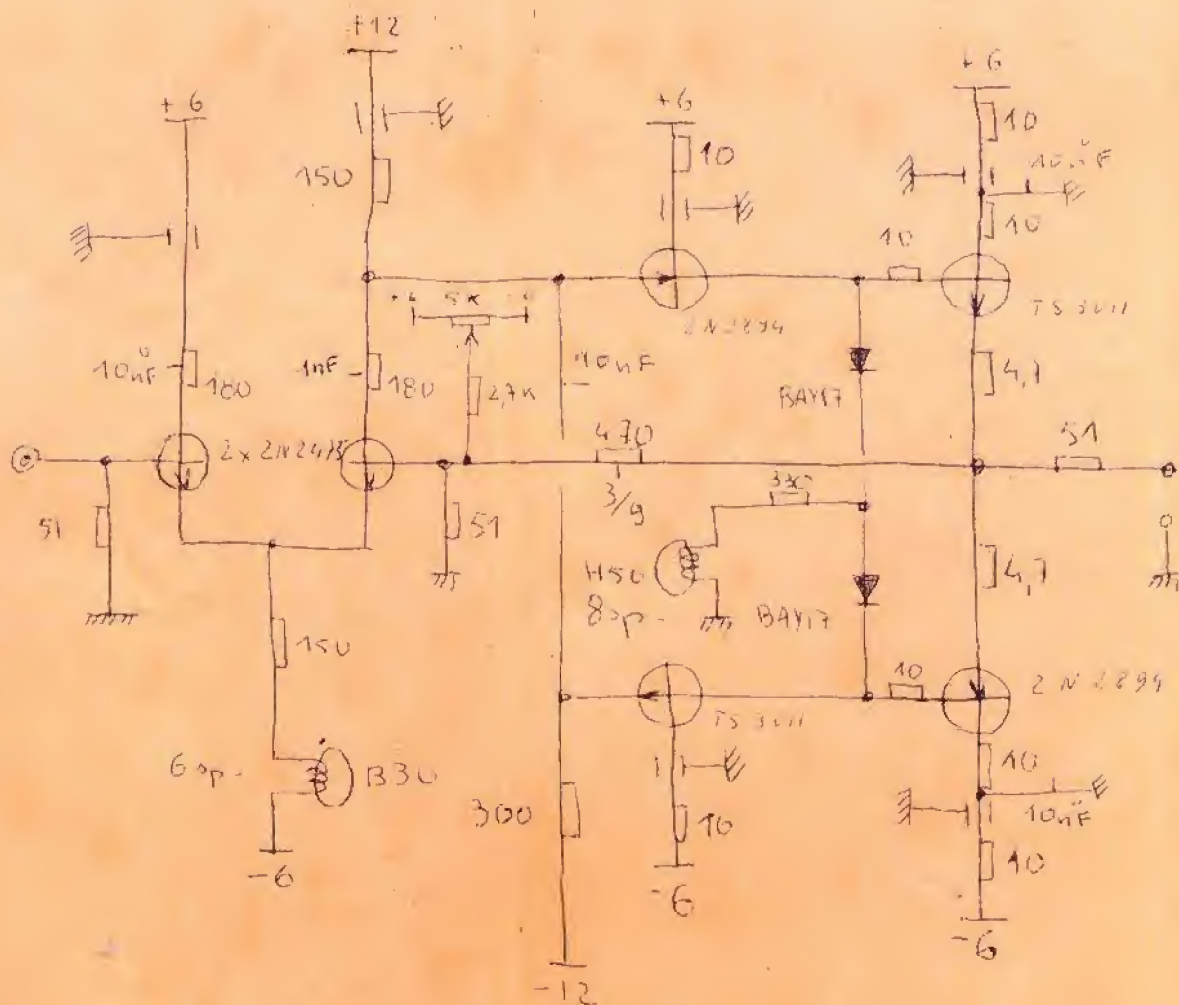 +12
+6
+6
+6
10
10
150
10nF
10
10
2N2894
+6 5K
TS 3011
10nF
180
1nF
180
2,7K
10nF
BAY17
4,7
2x 2N2475
470
51
3/9
330
51
51
H50
8 sp.
BAY17
4,7
150
10
2N2894
TS 3011
6 sp.
B30
10
300
10
10nF
10
-6
-6
-6
-12